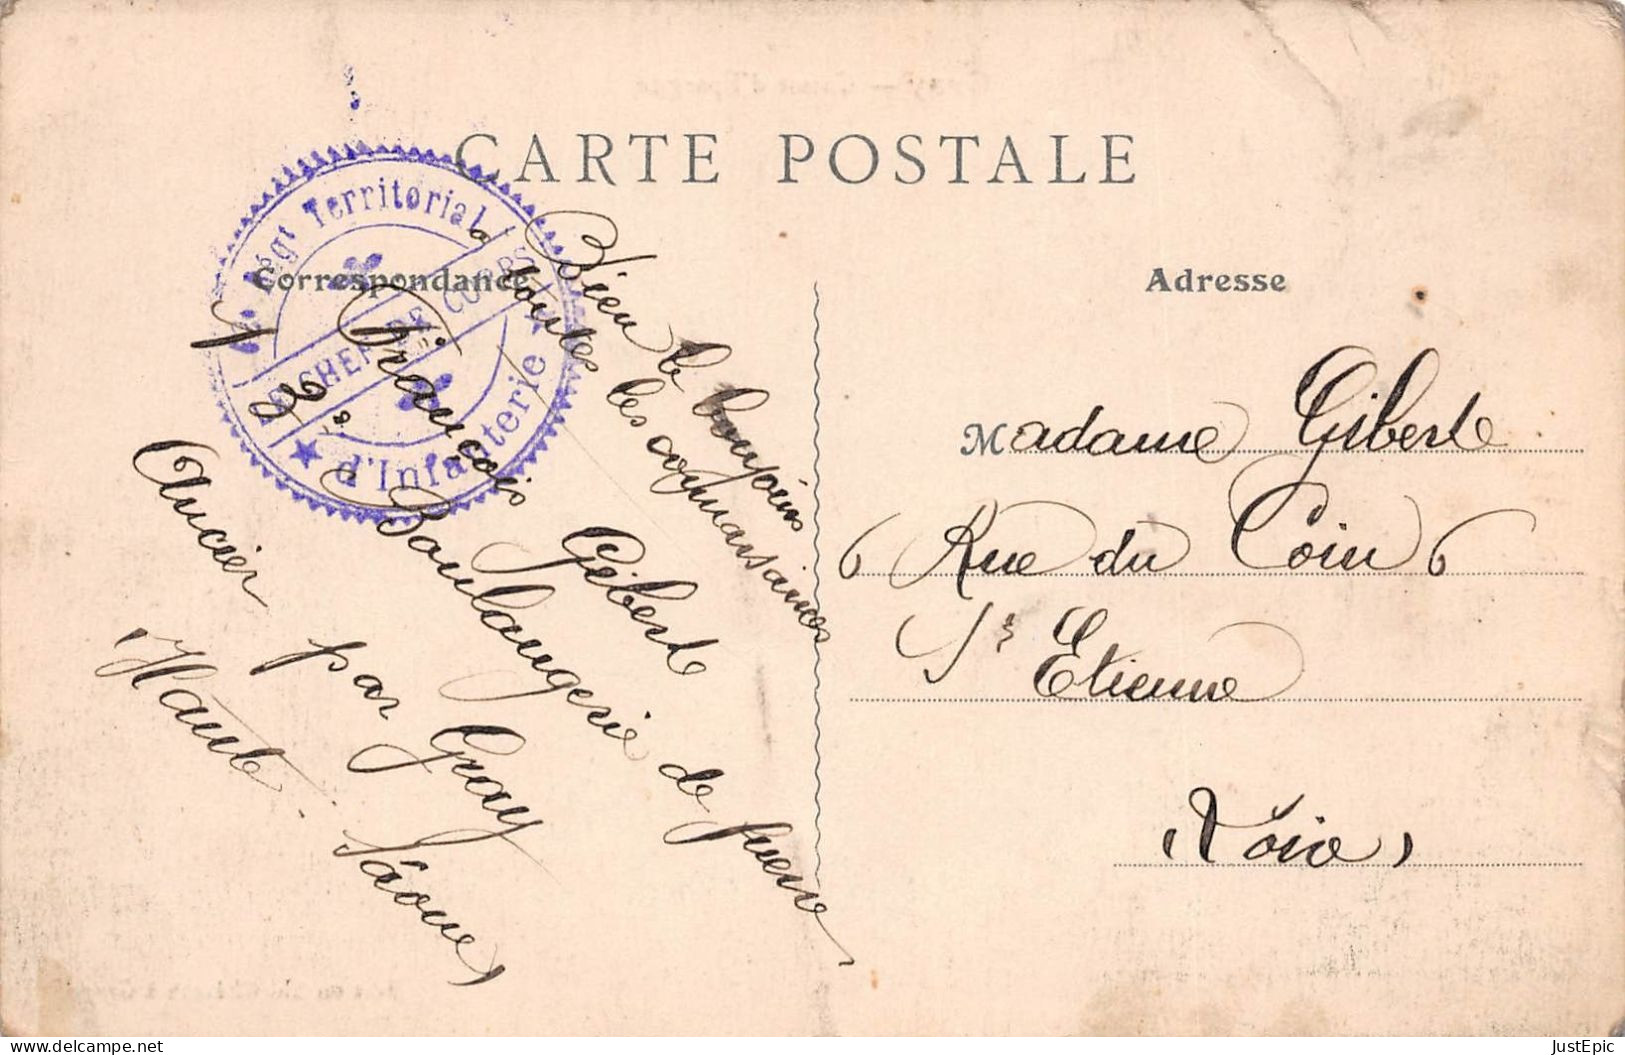 CARTE POSTALE
Correspondance
Adresse
Régt Territorial
d'Infanterie
CHEF DE CORPS
Bien le bonjour
à toutes les
François Giberte
Boulangerie de
Ancier par Gray
Haute-Sâone
Madame Giberte
6 Rue du Coin 6
St Etienne
(Loire)
delcampe.net
JustEpic